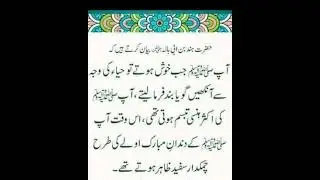 حضرت ہند بن ابی ہالہ رضی اللہ عنہ بیان کرتے ہیں کہ
آپ ﷺ جب خوش ہوتے تو حیاء کی وجہ
سے آنکھیں گویا بند فرما لیتے، آپ ﷺ
کی اکثر ہنسی تبسم ہوتی تھی، اس وقت آپ
ﷺ کے دندانِ مبارک اولے کی طرح
چمکدار سفید ظاہر ہوتے تھے۔